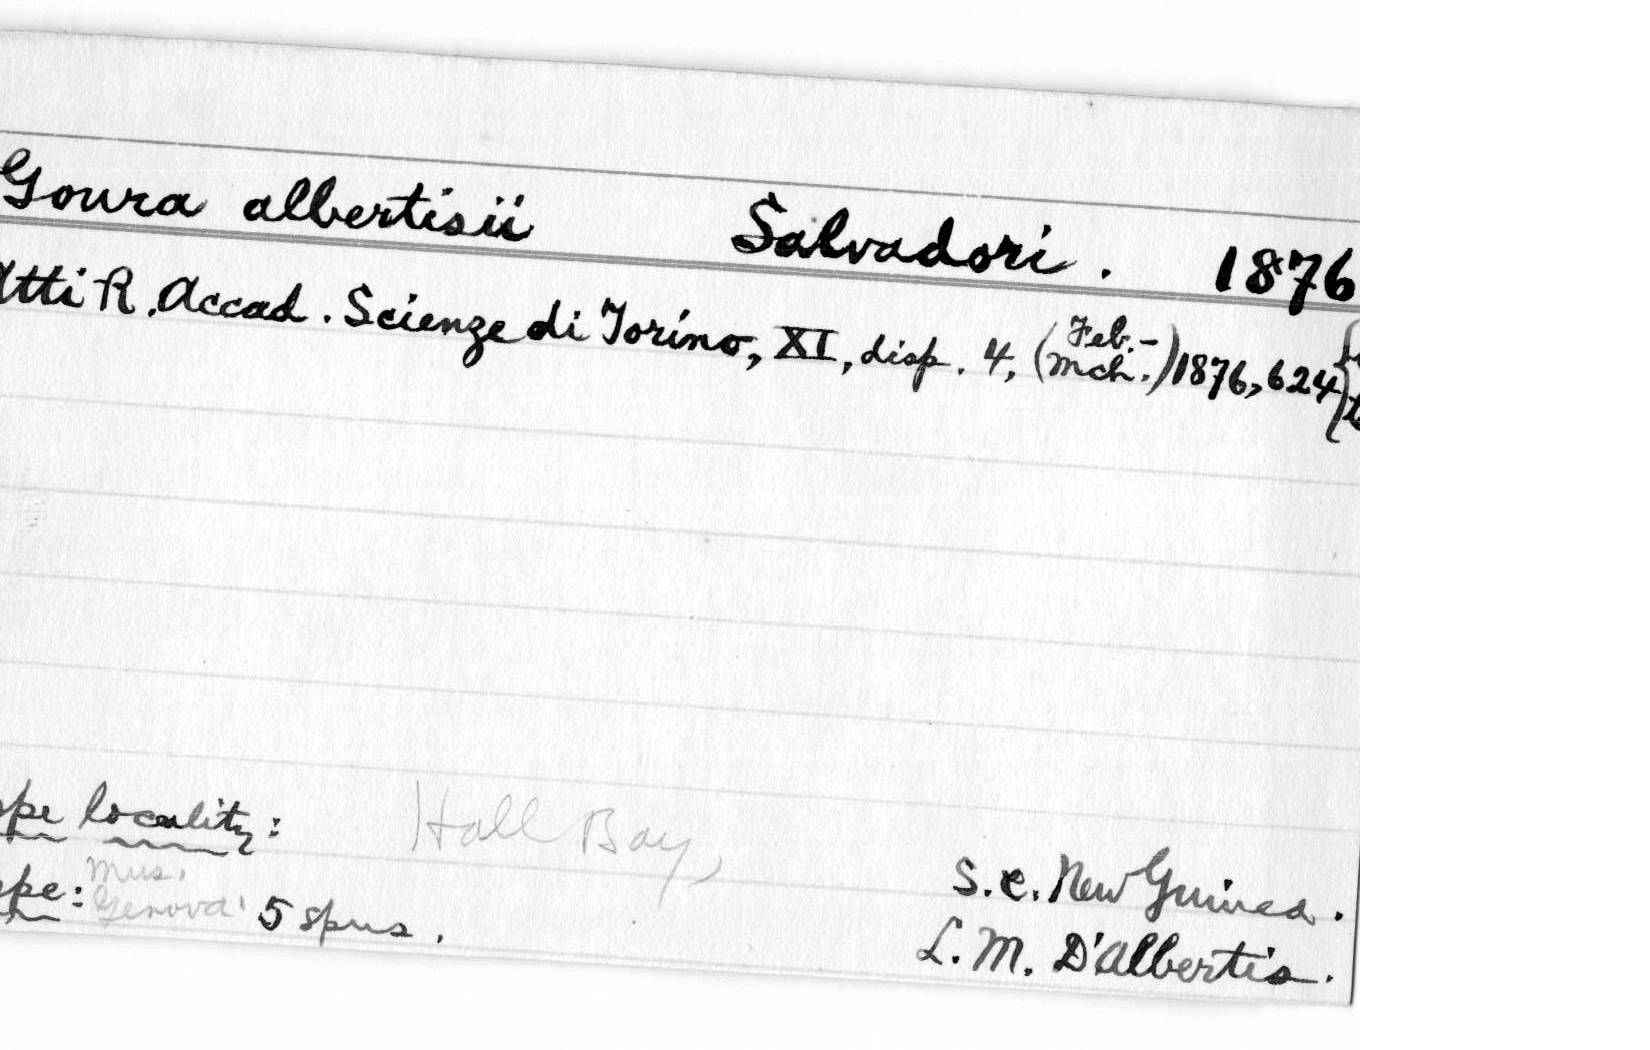 Goura albertisii Salvadori. 1876
Atti R. Accad. Scienze di Torino, XI, disp. 4, (Feb.-Mch.) 1876, 624
ype locality: Hall Bay, S.E. New Guinea.
ype: Mus. Genova' 5 spns. L. M. D'Albertis.